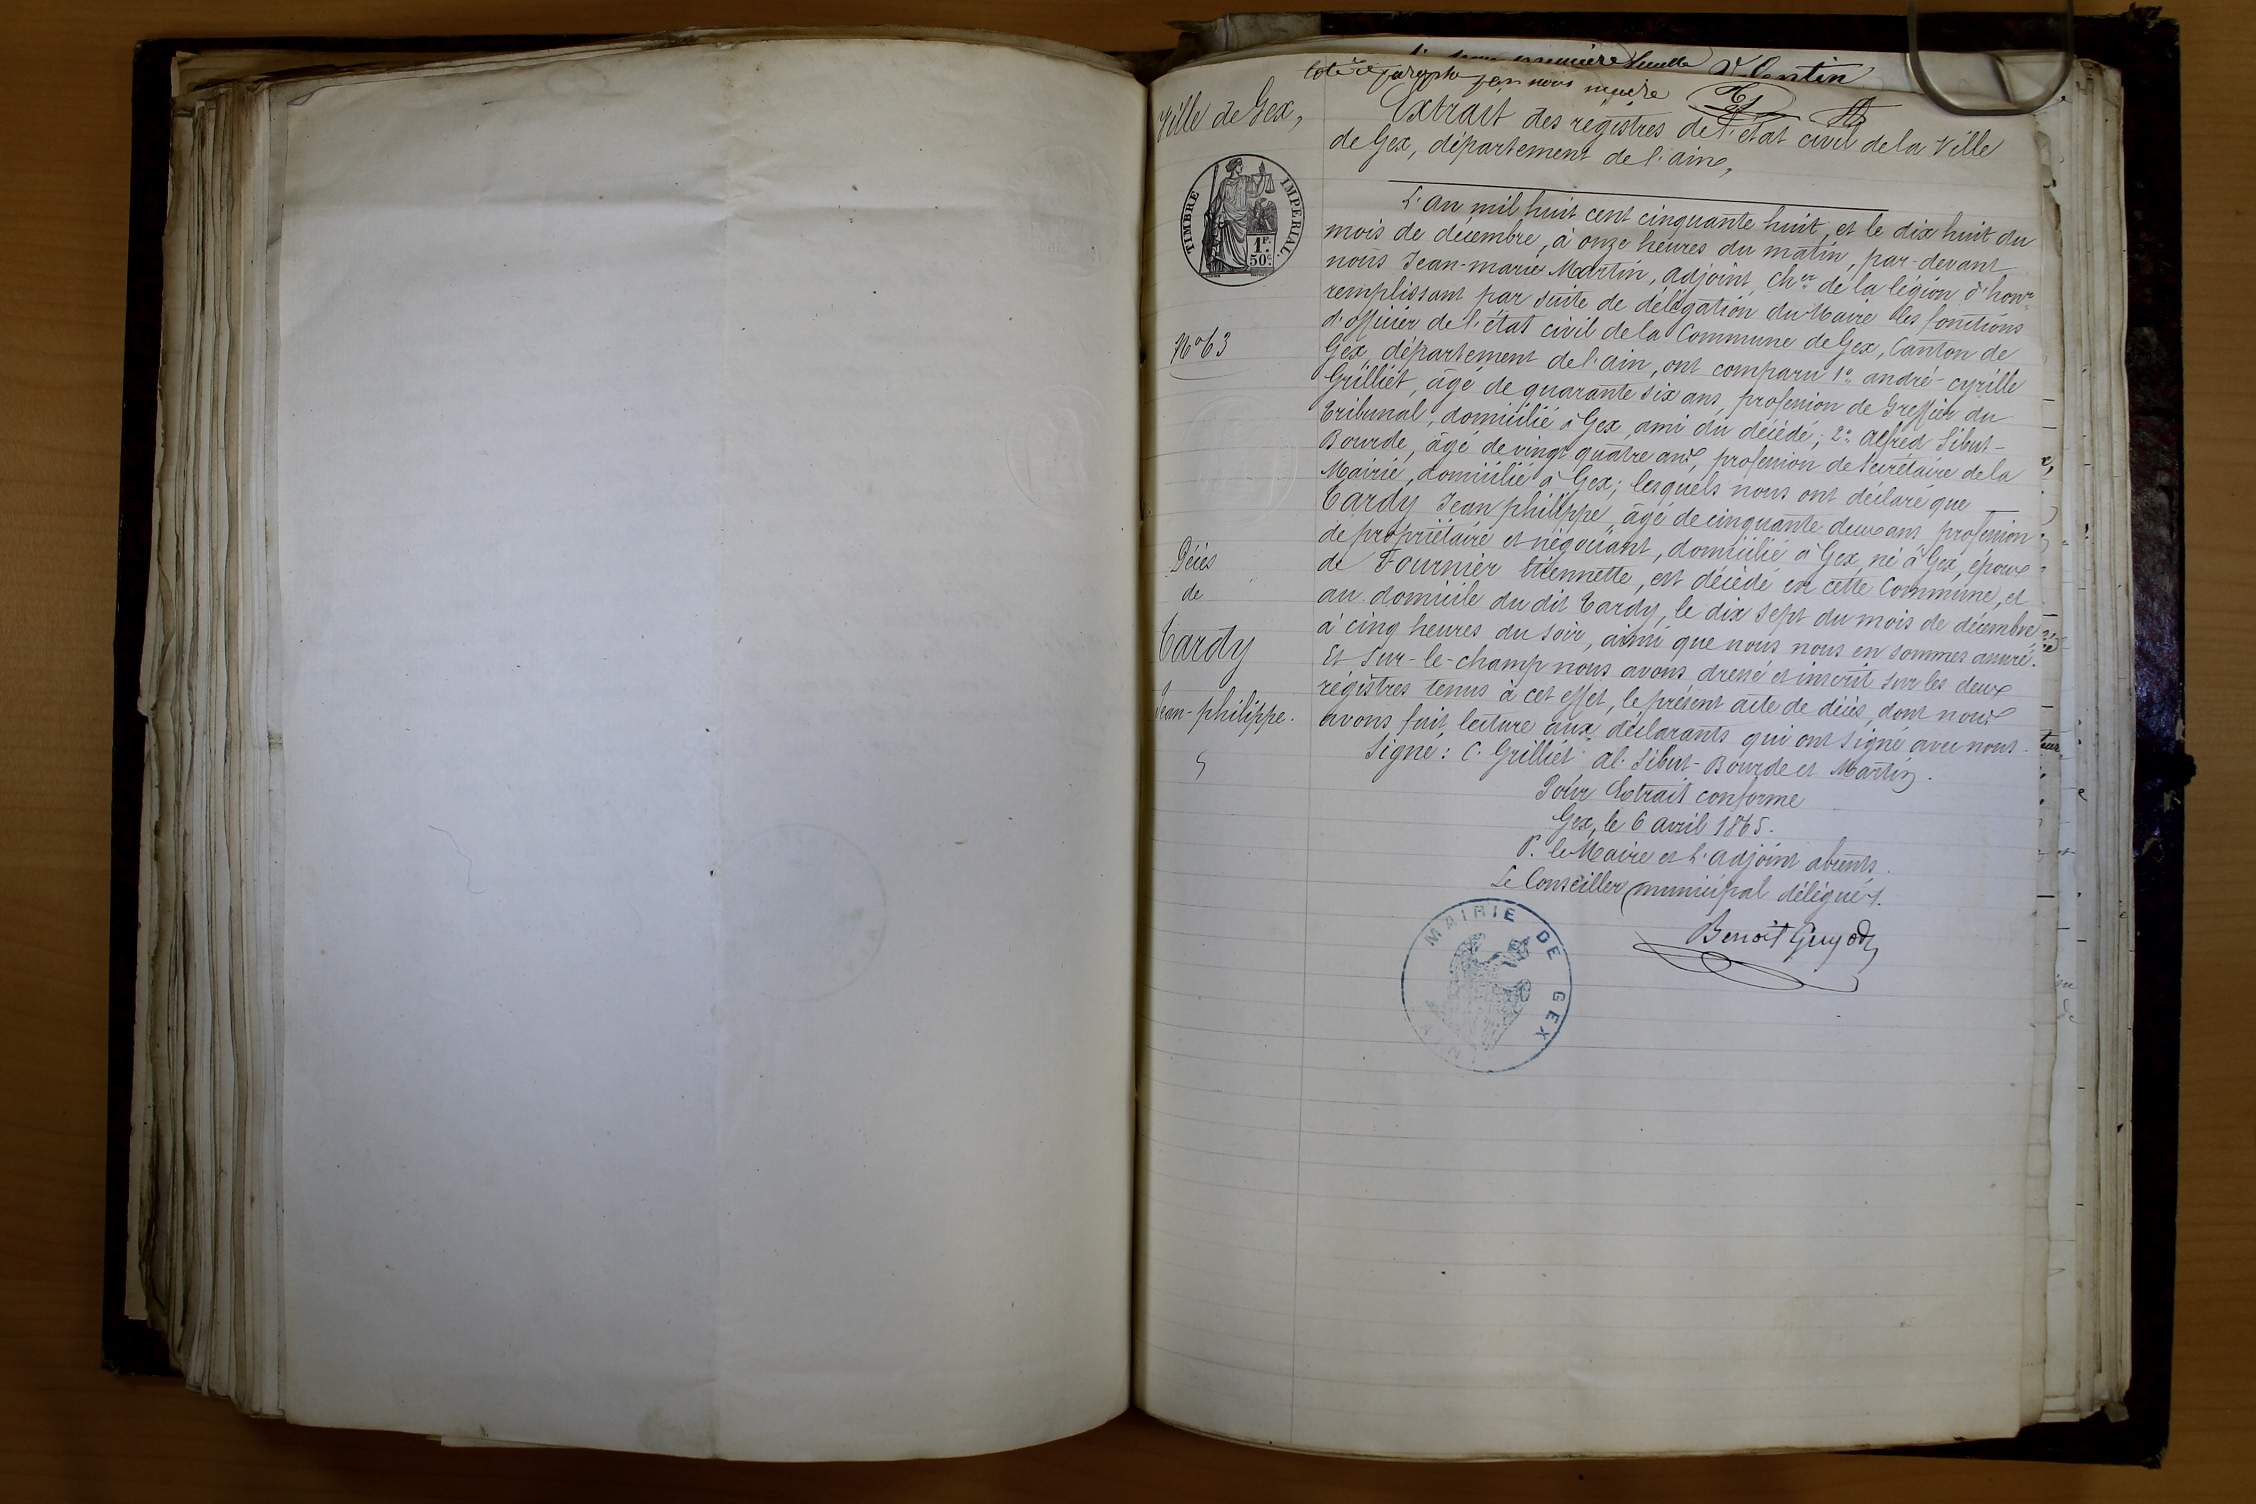 première feuille
Coté et paraphé par nous maire
Ville de Gex,
TIMBRE IMPERIAL.
1F. 50C.
No 63
Décès
de
Tardy
Jean-philippe.
Extrait des régistres de l'état civil de la Ville
de Gex, département de l'ain,
L'an mil huit cent cinquante huit, et le dix huit du
mois de décembre, à onze heures du matin, par-devant
nous Jean-marie Martin, adjoint, Cher de la légion d'honr
remplissant par suite de délégation du Maire les fonctions
d'officier de l'état civil de la Commune de Gex, Canton de
Gex, département de l'ain, ont comparu 1o andré-cyrille
Grilliet, âgé de quarante six ans, profession de Greffier du
Tribunal, domicilié à Gex, ami du décédé; 2o alfred Sibut-
Bourde, âgé de vingt quatre ans, profession de Secrétaire de la
Mairie, domicilié à Gex; lesquels nous ont déclaré que
Tardy Jean philippe, âgé de cinquante deux ans profession
de propriétaire et négociant, domicilié à Gex, né à Gex, époux
de Fournier Etiennette, est décédé en cette Commune, et
au domicile du dit Tardy, le dix sept du mois de décembre,
à cinq heures du soir, ainsi que nous nous en sommes assuré.
Et Sur-le-champ nous avons dressé et inscrit sur les deux
régistres tenus à cet effet, le présent acte de décès, dont nous
avons fait lecture aux déclarants qui ont signé avec nous.
Signé: C. Grilliet al. Sibut-Bourde et Martin.
Pour Extrait conforme
Gex, le 6 avril 1865.
P. le Maire et l'adjoint absents.
Le Conseiller municipal délégué.
Benoit Guyod
MAIRIE DE GEX
AIN